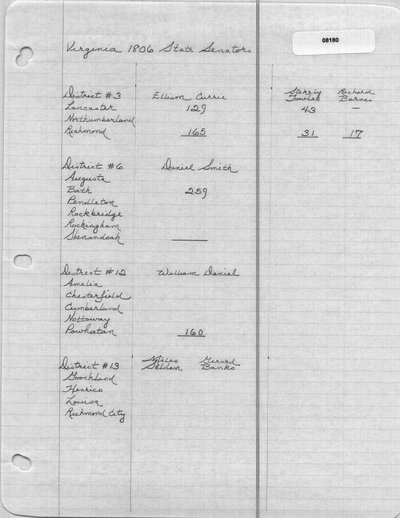 08180
Virginia 1806 State Senators
District #3 Ellison Currie Stokely Towles Richard Barnes
Lancaster 129 43 —
Northumberland
Richmond 165 31 17
District #6 Daniel Smith
Augusta
Bath 259
Pendleton
Rockbridge
Rockingham
Shenandoah
District #12 William Daniel
Amelia
Chesterfield
Cumberland
Nottoway
Powhatan 160
District #13 Miles Selden Gerard Banks
Goochland
Henrico
Louisa
Richmond City